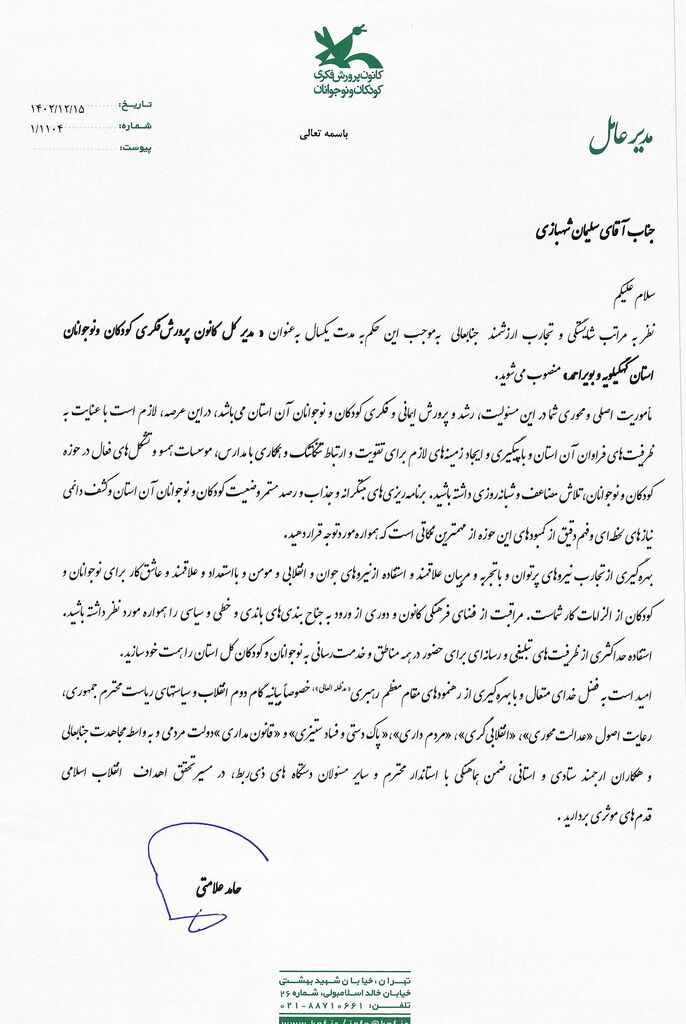 کانون پرورش فکری
کودکان و نوجوانان
تاریخ: ۱۴۰۲/۱۲/۱۵
شماره: ۱/۱۱۰۴
پیوست:
باسمه تعالی
مدیر عامل
جناب آقای سلیمان شهبازی
سلام علیکم
نظر به مراتب شایستگی و تجارب ارزشمند جنابعالی به‌موجب این حکم به مدت یکسال به‌عنوان « مدیر کل کانون پرورش فکری کودکان ونوجوانان
استان کهگیلویه و بویراحمد» منصوب می‌شوید.
مأموریت اصلی و محوری شما در این مسئولیت، رشد و پرورش ایمانی و فکری کودکان و نوجوانان آن استان می‌باشد، دراین عرصه، لازم است با عنایت به
ظرفیت‌های فراوان آن استان و با پیگیری و ایجاد زمینه‌های لازم برای تقویت و ارتباط تنگاتنگ و همکاری با مدارس، موسسات همسو و تشکل‌های فعال در حوزه
کودکان و نوجوانان، تلاش مضاعف و شبانه‌روزی داشته باشید. برنامه‌ریزی‌های مبتکرانه و جذاب و رصد مستمر وضعیت کودکان و نوجوانان آن استان و کشف دائمی
نیازهای لحظه‌ای و فهم دقیق از کمبودهای این حوزه از مهمترین نکاتی است که همواره مورد توجه قرار دهید.
بهره‌گیری از تجارب نیروهای پرتوان و باتجربه و مربیان علاقمند و استفاده از نیروهای جوان و انقلابی و مومن و بااستعداد و علاقمند و عاشق کار برای نوجوانان و
کودکان از الزامات کار شماست. مراقبت از فضای فرهنگی کانون و دوری از ورود به جناح بندی‌های باندی و خطی و سیاسی را همواره مورد نظر داشته باشید.
استفاده حداکثری از ظرفیت‌های تبلیغی و رسانه‌ای برای حضور در همه مناطق و خدمت‌رسانی به نوجوانان و کودکان کل استان را همت خود سازید.
امید است به فضل خدای متعال و با بهره‌گیری از رهنمودهای مقام معظم رهبری(مدظله العالی)، خصوصاً بیانیه گام دوم انقلاب و سیاستهای ریاست محترم جمهوری،
رعایت اصول «عدالت محوری»، «انقلابی‌گری»، «مردم داری»، «پاک دستی و فساد ستیزی» و «قانون مداری» دولت مردمی و به واسطه مجاهدت جنابعالی
و همکاران ارجمند ستادی و استانی، ضمن هماهنگی با استاندار محترم و سایر مسئولان دستگاه های ذی‌ربط، در مسیر تحقق اهداف انقلاب اسلامی
قدم‌های موثری بردارید .
حامد علامتی
تهران، خیابان شهید بهشتی
خیابان خالد اسلامبولی، شماره ۲۶
تلفن: ۰۲۱-۸۸۷۱۰۶۶۱
www.kpf.ir / info@kpf.ir